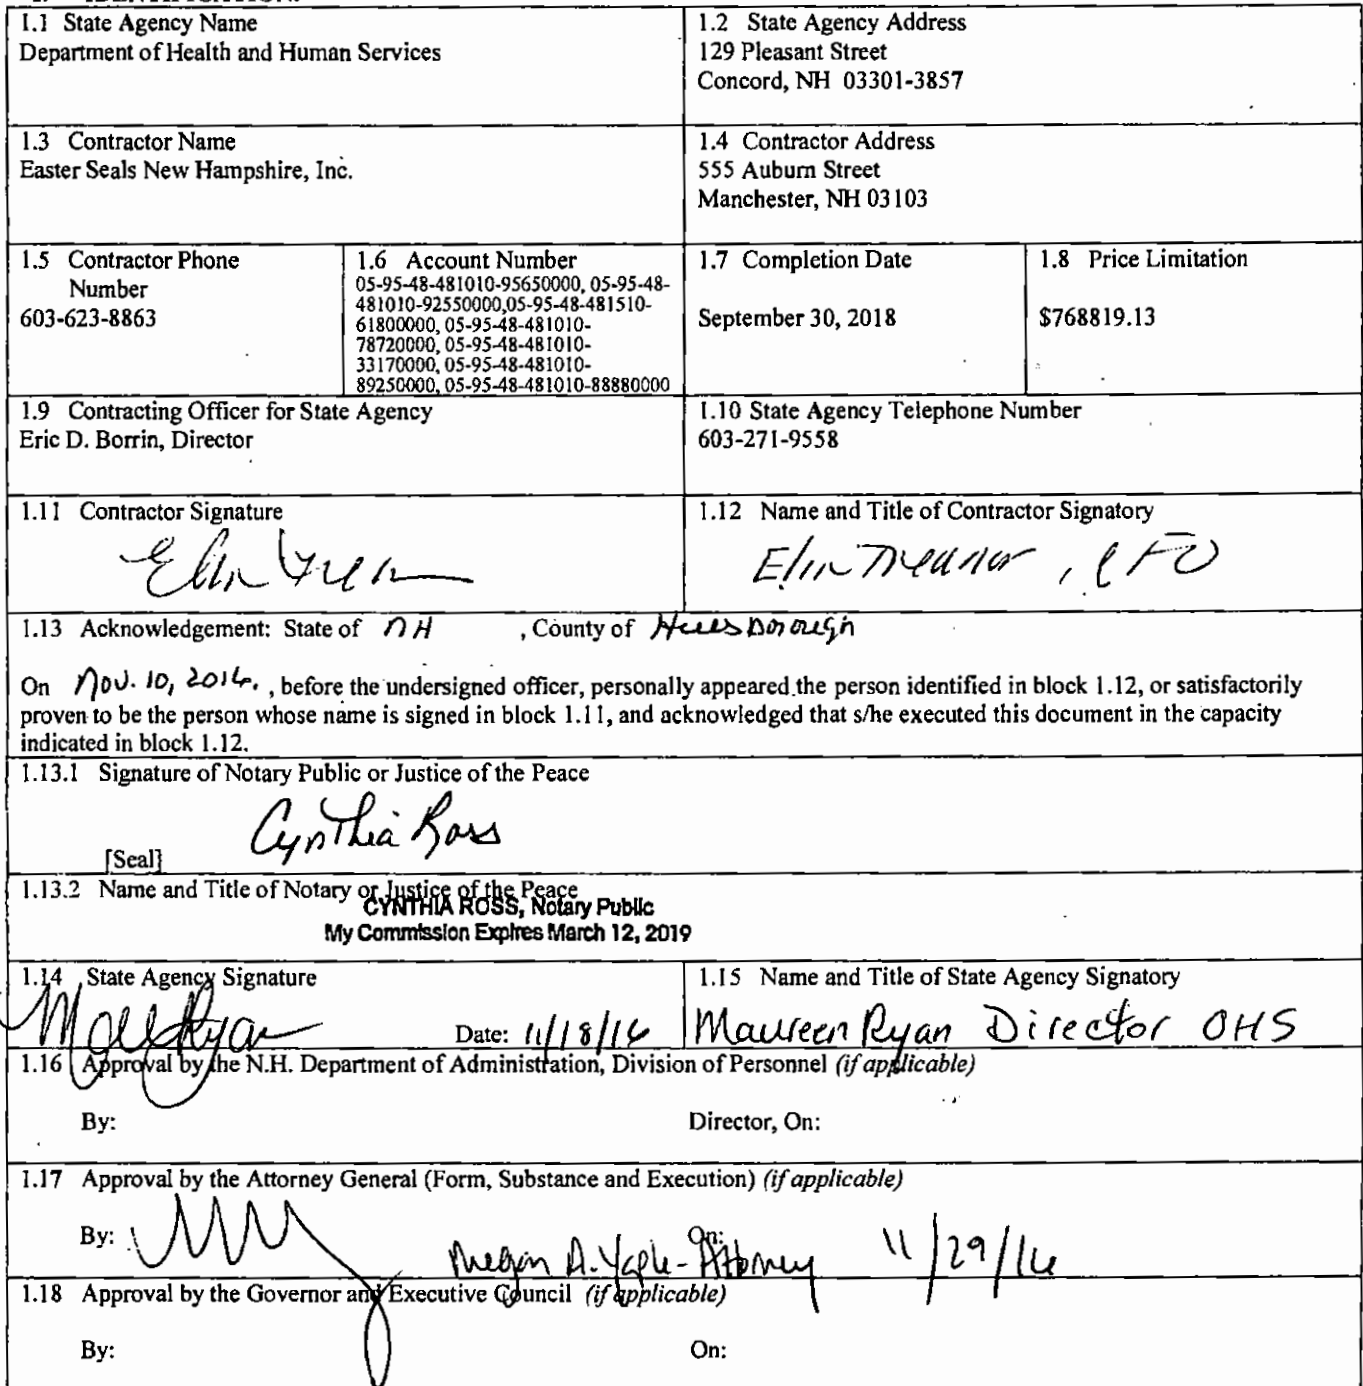 1.1 State Agency Name
Department of Health and Human Services
1.2 State Agency Address
129 Pleasant Street
Concord, NH 03301-3857
1.3 Contractor Name
Easter Seals New Hampshire, Inc.
1.4 Contractor Address
555 Auburn Street
Manchester, NH 03103
1.5 Contractor Phone
Number
603-623-8863
1.6 Account Number
05-95-48-481010-95650000, 05-95-48-
481010-92550000,05-95-48-481510-
61800000, 05-95-48-481010-
78720000, 05-95-48-481010-
33170000, 05-95-48-481010-
89250000, 05-95-48-481010-88880000
1.7 Completion Date
September 30, 2018
1.8 Price Limitation
$768819.13
1.9 Contracting Officer for State Agency
Eric D. Borrin, Director
1.10 State Agency Telephone Number
603-271-9558
1.11 Contractor Signature
1.12 Name and Title of Contractor Signatory
Elin Treanor, CFO
1.13 Acknowledgement: State of NH , County of Hillsborough
On Nov. 10, 2016. , before the undersigned officer, personally appeared the person identified in block 1.12, or satisfactorily
proven to be the person whose name is signed in block 1.11, and acknowledged that s/he executed this document in the capacity
indicated in block 1.12.
1.13.1 Signature of Notary Public or Justice of the Peace
Cynthia Ross
[Seal]
1.13.2 Name and Title of Notary or Justice of the Peace
CYNTHIA ROSS, Notary Public
My Commission Expires March 12, 2019
1.14 State Agency Signature
Date: 11/18/16
1.15 Name and Title of State Agency Signatory
Maureen Ryan Director OHS
1.16 Approval by the N.H. Department of Administration, Division of Personnel (if applicable)
By: Director, On:
1.17 Approval by the Attorney General (Form, Substance and Execution) (if applicable)
By: On:
Megan A. Yaple - Attorney 11/29/16
1.18 Approval by the Governor and Executive Council (if applicable)
By: On: